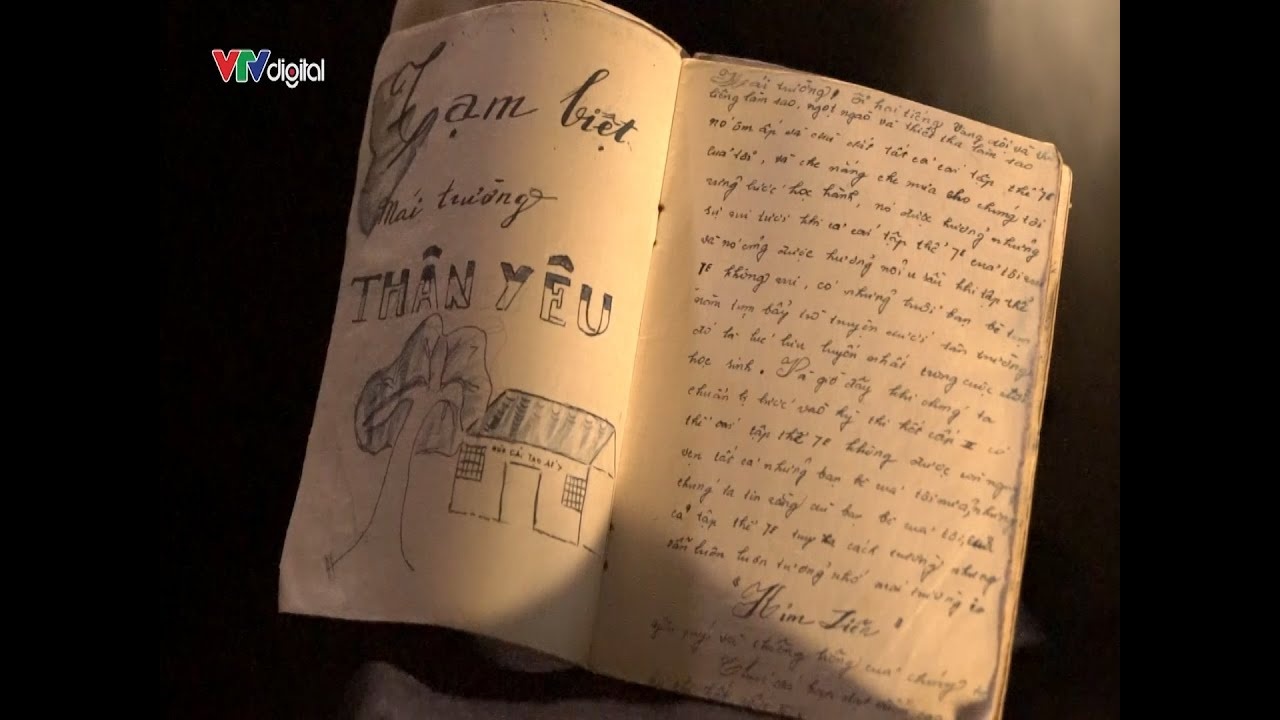 VTV digital
Tạm biệt
Mái trường
THÂN YÊU
Mái trường! Ôi hai tiếng Vang dội và
tiếng làm sao, ngọt ngào và thiết tha làm sao
nó ôm ấp và tất cả cái tập thể 7E
của tôi, và che nắng che mưa cho chúng tôi
lúc học hành, nó được hưởng những
sự vui tươi khi cả cái tập thể 7E của tôi vui
và nó cũng được hưởng nỗi u sầu khi tập thể
7E không vui, có những buổi bạn bè tụm
năm tụm bẩy trò truyện dưới sân trường
đó là lúc lưu luyến nhất trong cuộc đời
học sinh. giờ đây khi chúng ta
chuẩn bị bước vào kỳ thi hết cấp II
thì cái tập thể 7E không được
vẹn tất cả những bạn bè của tôi nữa, nhưng
chúng ta tin rằng bạn bè của tôi,
cả tập thể 7E tuy xa cách trường nhưng
vẫn luôn luôn tưởng nhớ mái trường
Kim Tiến
và của chúng